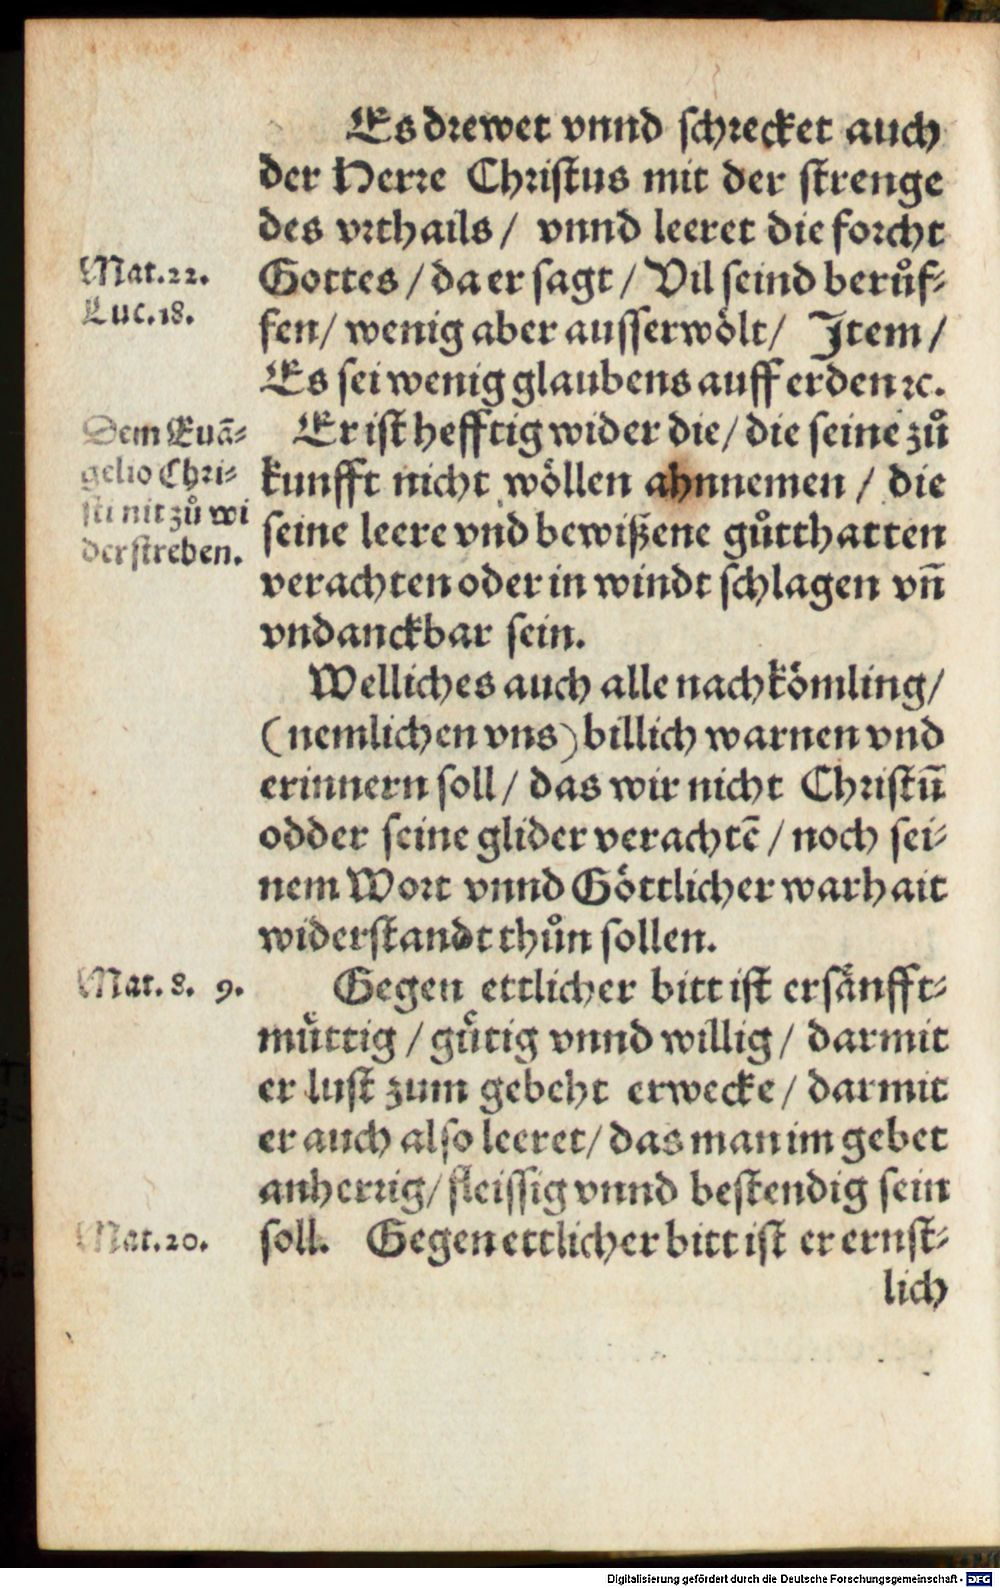 Es drewet vnnd schrecket auch
der Herre Christus mit der strenge
des vrthails / vnnd leeret die forcht
Mat. 22.
Luc. 18.
Gottes / da er sagt / Vil seind berůf-
fen / wenig aber ausserwölt / Item /
Es sei wenig glaubens auff erden ꝛc.
Dem Euā-
gelio Chri-
sti nit zů wi
derstreben.
Er ist hefftig wider die / die seine zů
kunfft nicht wöllen ahnnemen / die
seine leere vnd bewißene gůtthatten
verachten oder in windt schlagen vn̄
vndanckbar sein.
Welliches auch alle nachkömling /
(nemlichen vns) billich warnen vnd
erinnern soll / das wir nicht Christū
odder seine glider verachtē / noch sei-
nem Wort vnnd Göttlicher warhait
widerstandt thůn sollen.
Mat. 8. 9.
Gegen ettlicher bitt ist er sänfft-
müttig / gütig vnnd willig / darmit
er lust zum gebeht erwecke / darmit
er auch also leeret / das man im gebet
anherrig / fleissig vnnd bestendig sein
Mat. 20.
soll. Gegen ettlicher bitt ist er ernst-
lich
Digitalisierung gefördert durch die Deutsche Forschungsgemeinschaft - DFG